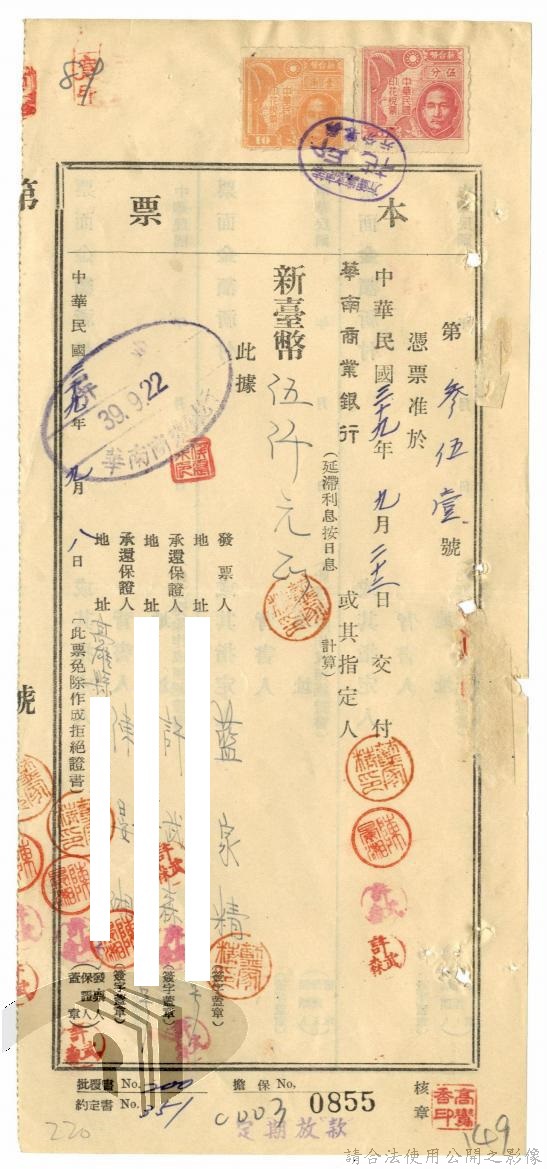 89
伍分
中華民國印花稅票
中華民國印花稅票
10
本票
第叁伍壹號
憑票准於
中華民國三十九年九月二十二日交付
華南商業銀行
或其指定人
(延滯利息按日息 計算)
新臺幣伍仟元正
此據
發票人 藍家精 (簽字蓋章)
地址
承還保證人 許武森 (簽字蓋章)
地址
承還保證人 陳景湘 (簽字蓋章)
地址 高雄縣
中華民國三九年九月八日
〔此票免除作成拒絕證書〕
發票人
保證人
蓋章
39.9.22
第
號
批覆書 No. 200
約定書 No. 351
擔保 No,
0003
0855
定期放款
核章
220
149
請合法使用公開之影像